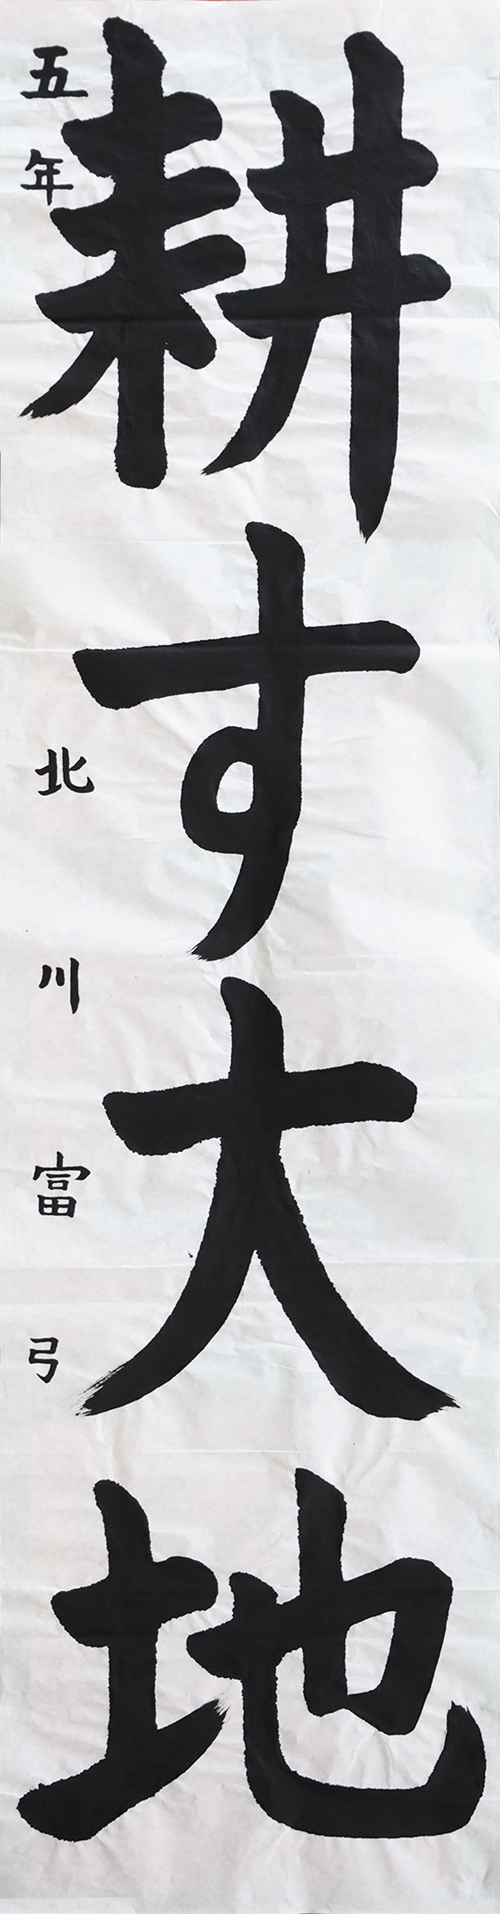 耕す大地
五年 北川富弓